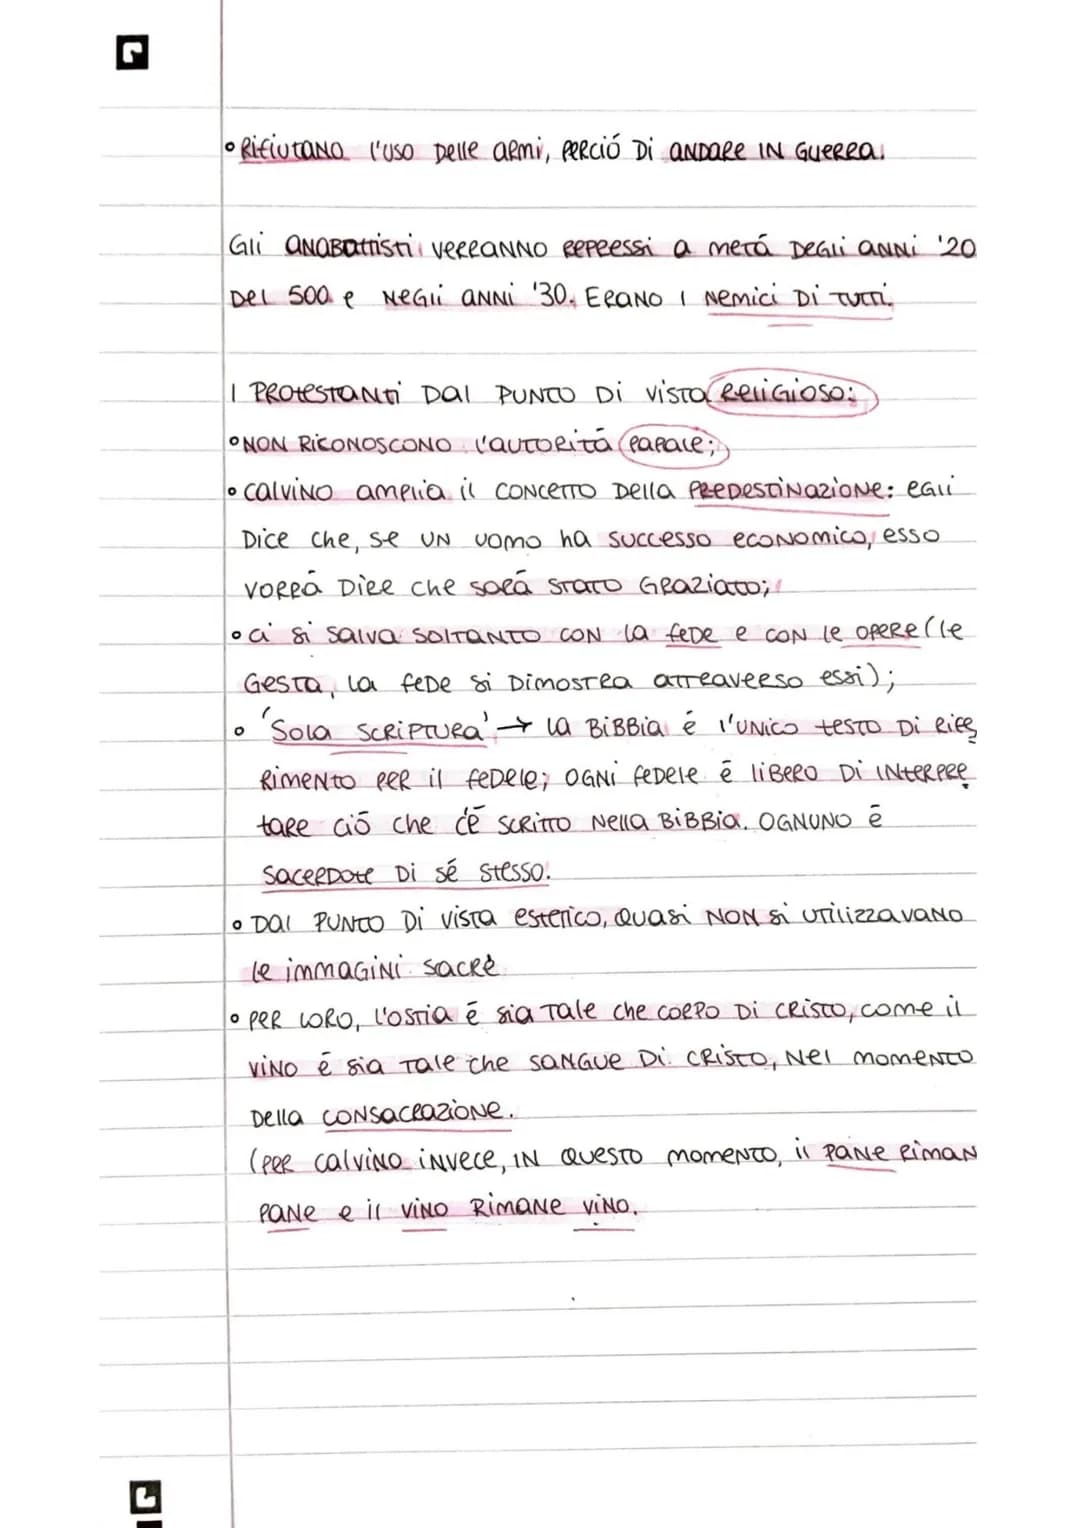 • Rifiutano l'uso delle armi, perció di andare in guerra.
Gli anabattisti verranno repressi a metá degli anni '20
del 500 e negli anni '30. Erano i nemici di tutti.
I protestanti dal punto di vista religioso:
• non riconoscono l'autoritá papale;
• Calvino amplia il concetto della predestinazione: egli
dice che, se un uomo ha successo economico, esso
vorrá dire che sará stato graziato;
• ci si salva soltanto con la fede e con le opere (le
gesta, la fede si dimostra attraverso essi);
• 'Sola scriptura' → la Bibbia é l'unico testo di rife
rimento per il fedele; ogni fedele é libero di interpre
tare ció che c'é scritto nella Bibbia. Ognuno é
sacerdote di sé stesso.
• dal punto di vista estetico, quasi non si utilizzavano
le immagini sacre
• per loro, l'ostia é sia tale che corpo di Cristo, come il
vino é sia tale che sangue di Cristo, nel momento
della consacrazione.
(per Calvino invece, in questo momento, il pane riman
pane e il vino rimane vino.